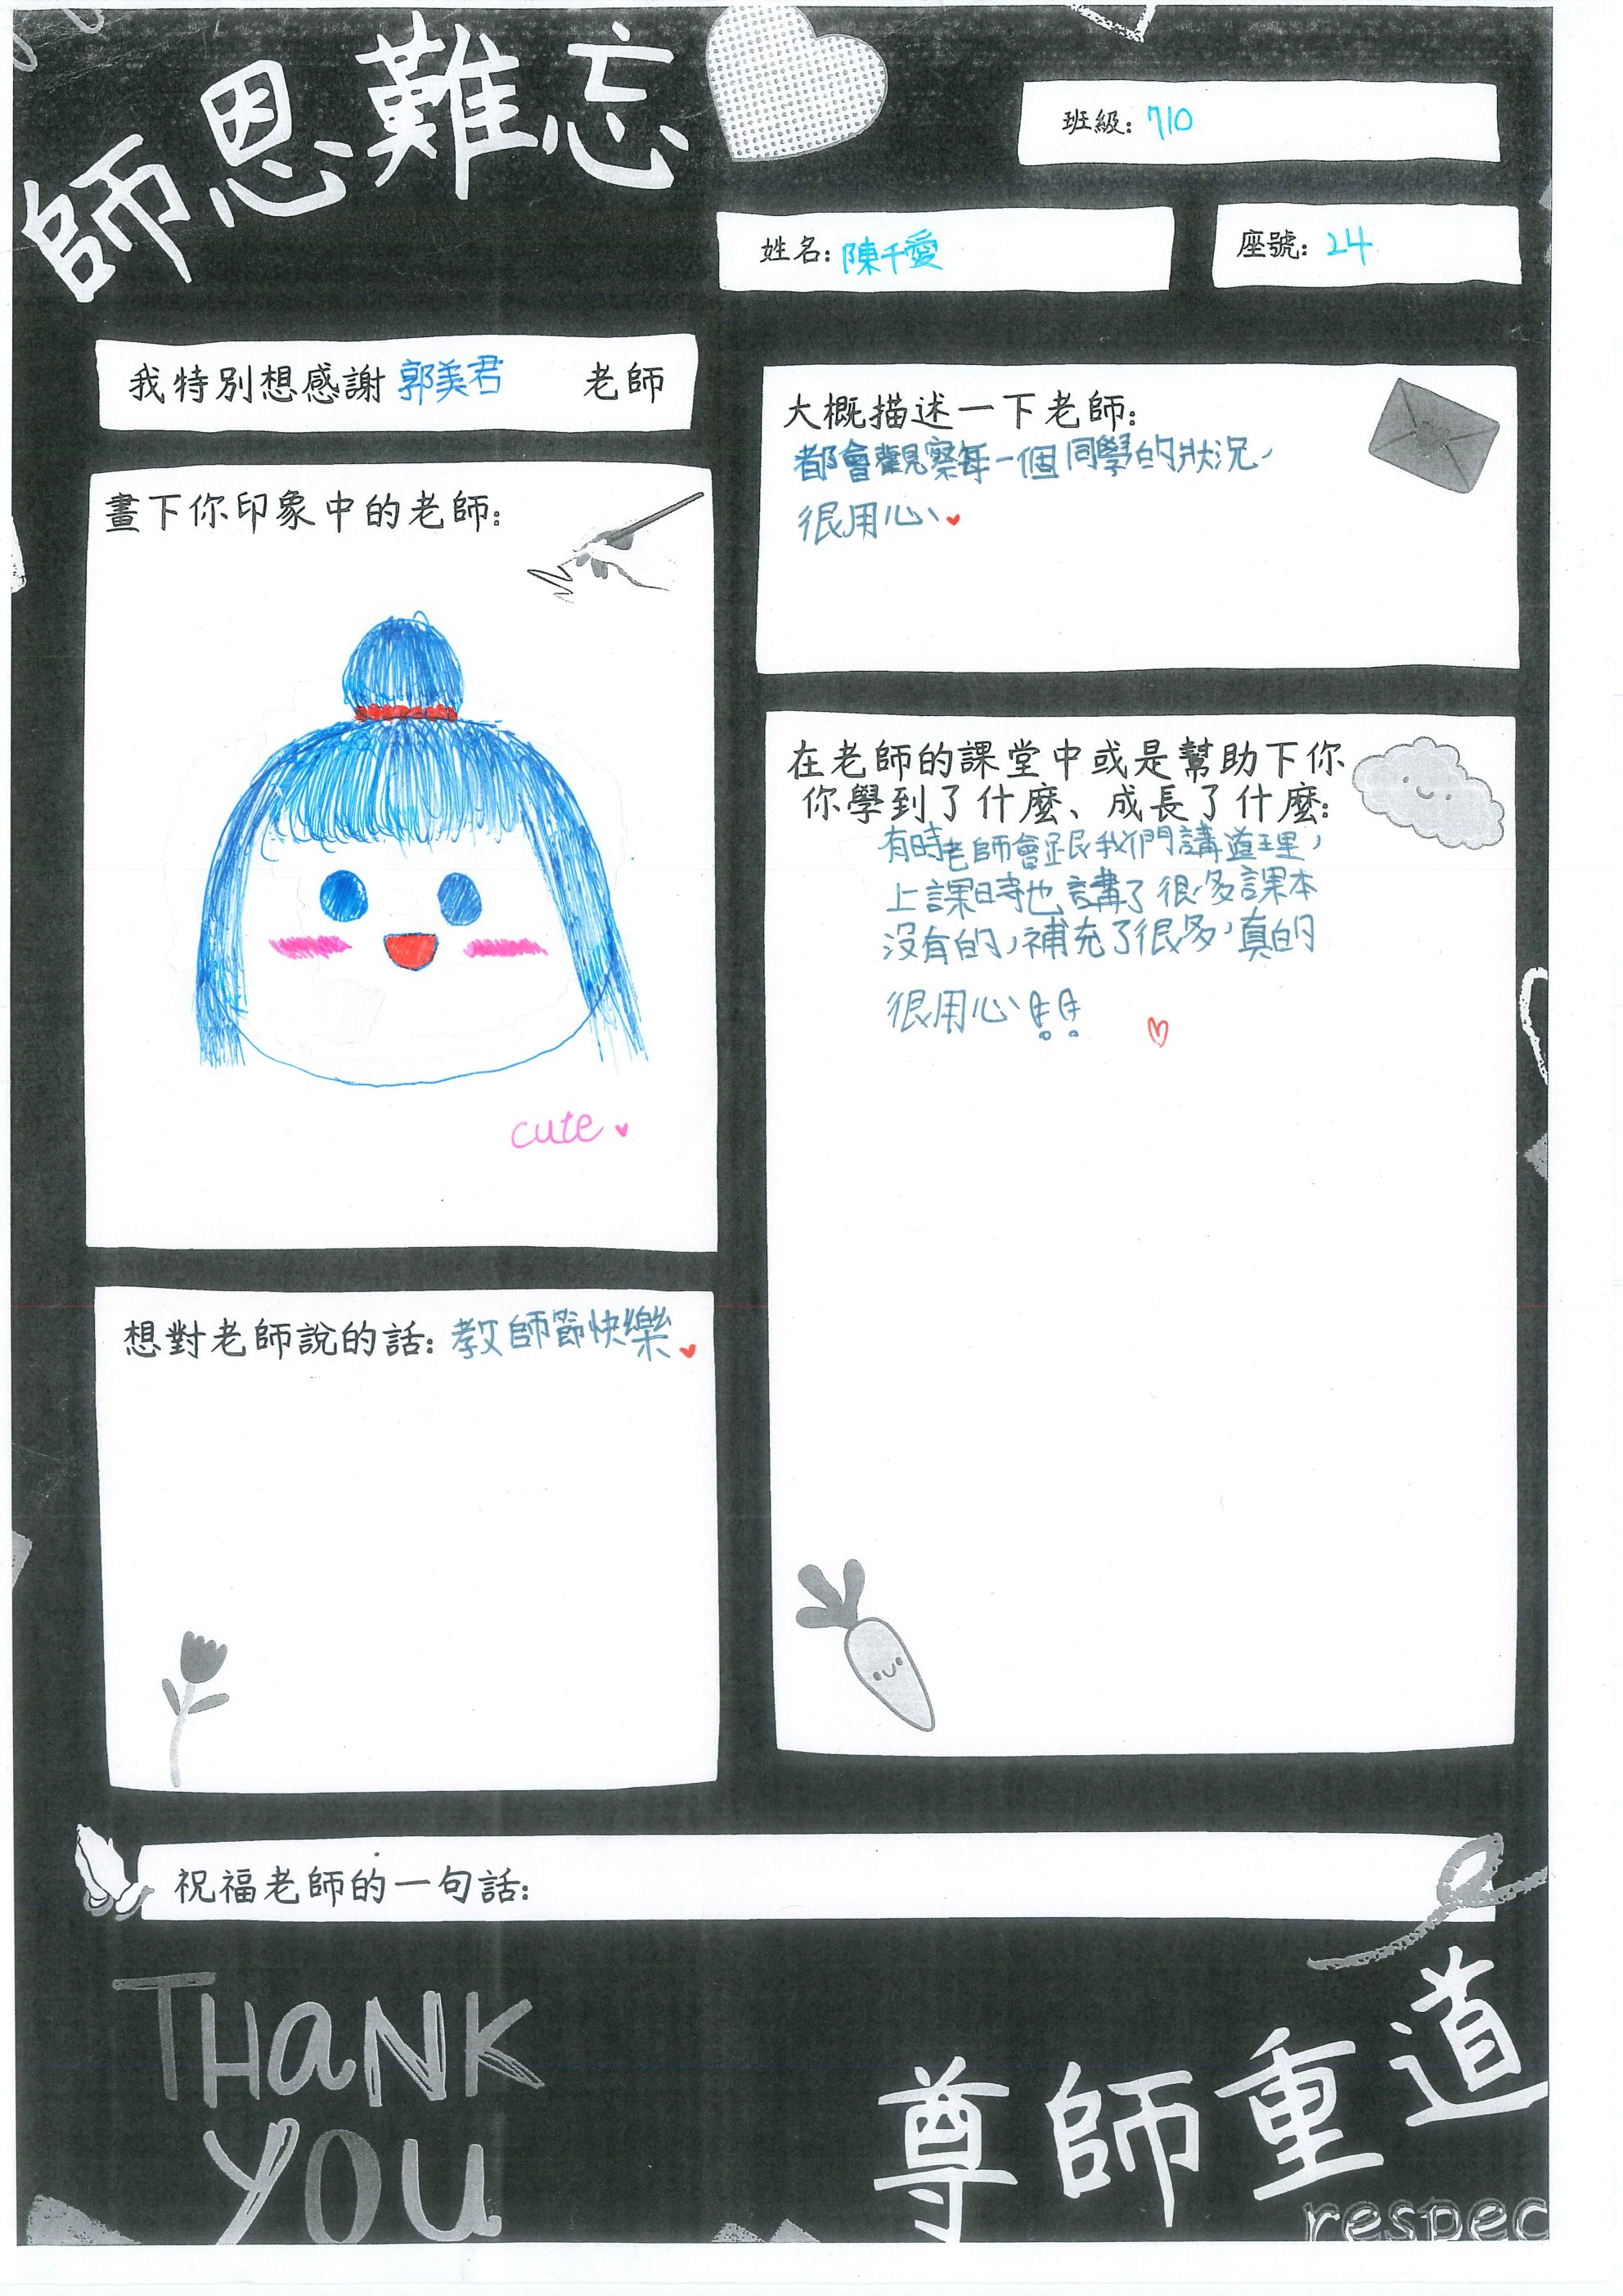 師恩難忘
班級：710
姓名：陳千愛
座號：24
我特別想感謝 郭美君 老師
畫下你印象中的老師：
cute
大概描述一下老師：
都會觀察每一個同學的狀況，
很用心
在老師的課堂中或是幫助下你
你學到了什麼、成長了什麼：
有時老師會跟我們講道理，
上課時也講了很多課本
沒有的，補充了很多，真的
很用心!!
想對老師說的話：教師節快樂
祝福老師的一句話：
THANK
YOU
尊師重道
respec